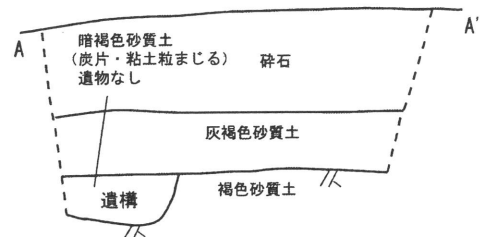 A
A'
暗褐色砂質土
（炭片・粘土粒まじる）
遺物なし
砕石
灰褐色砂質土
遺構
褐色砂質土